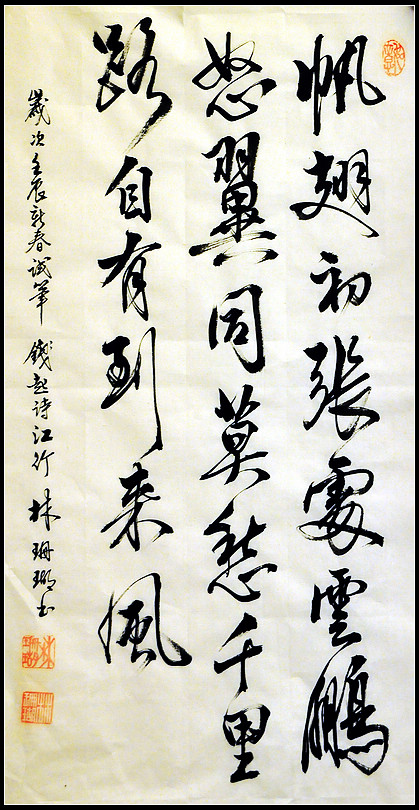 帆翅初張處雲鵬
怒翼同莫愁千里
路自有到來風
歲次壬辰新春試筆 錢起詩江行 林珊瑚書